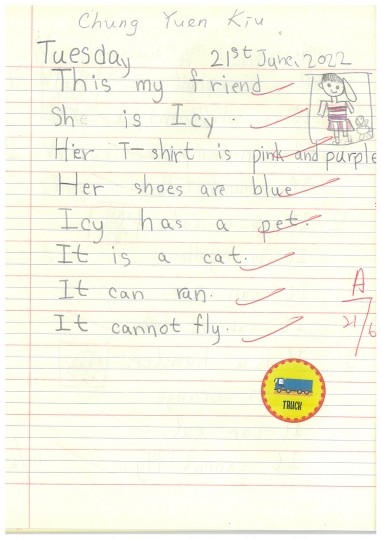 Chung Yuen Kiu
Tuesday 21st June, 2022
This my friend
She is Icy.
Her T-shirt is pink and purple
Her shoes are blue
Icy has a pet.
It is a cat.
It can ran.
It cannot fly.
A
21/6
TRUCK